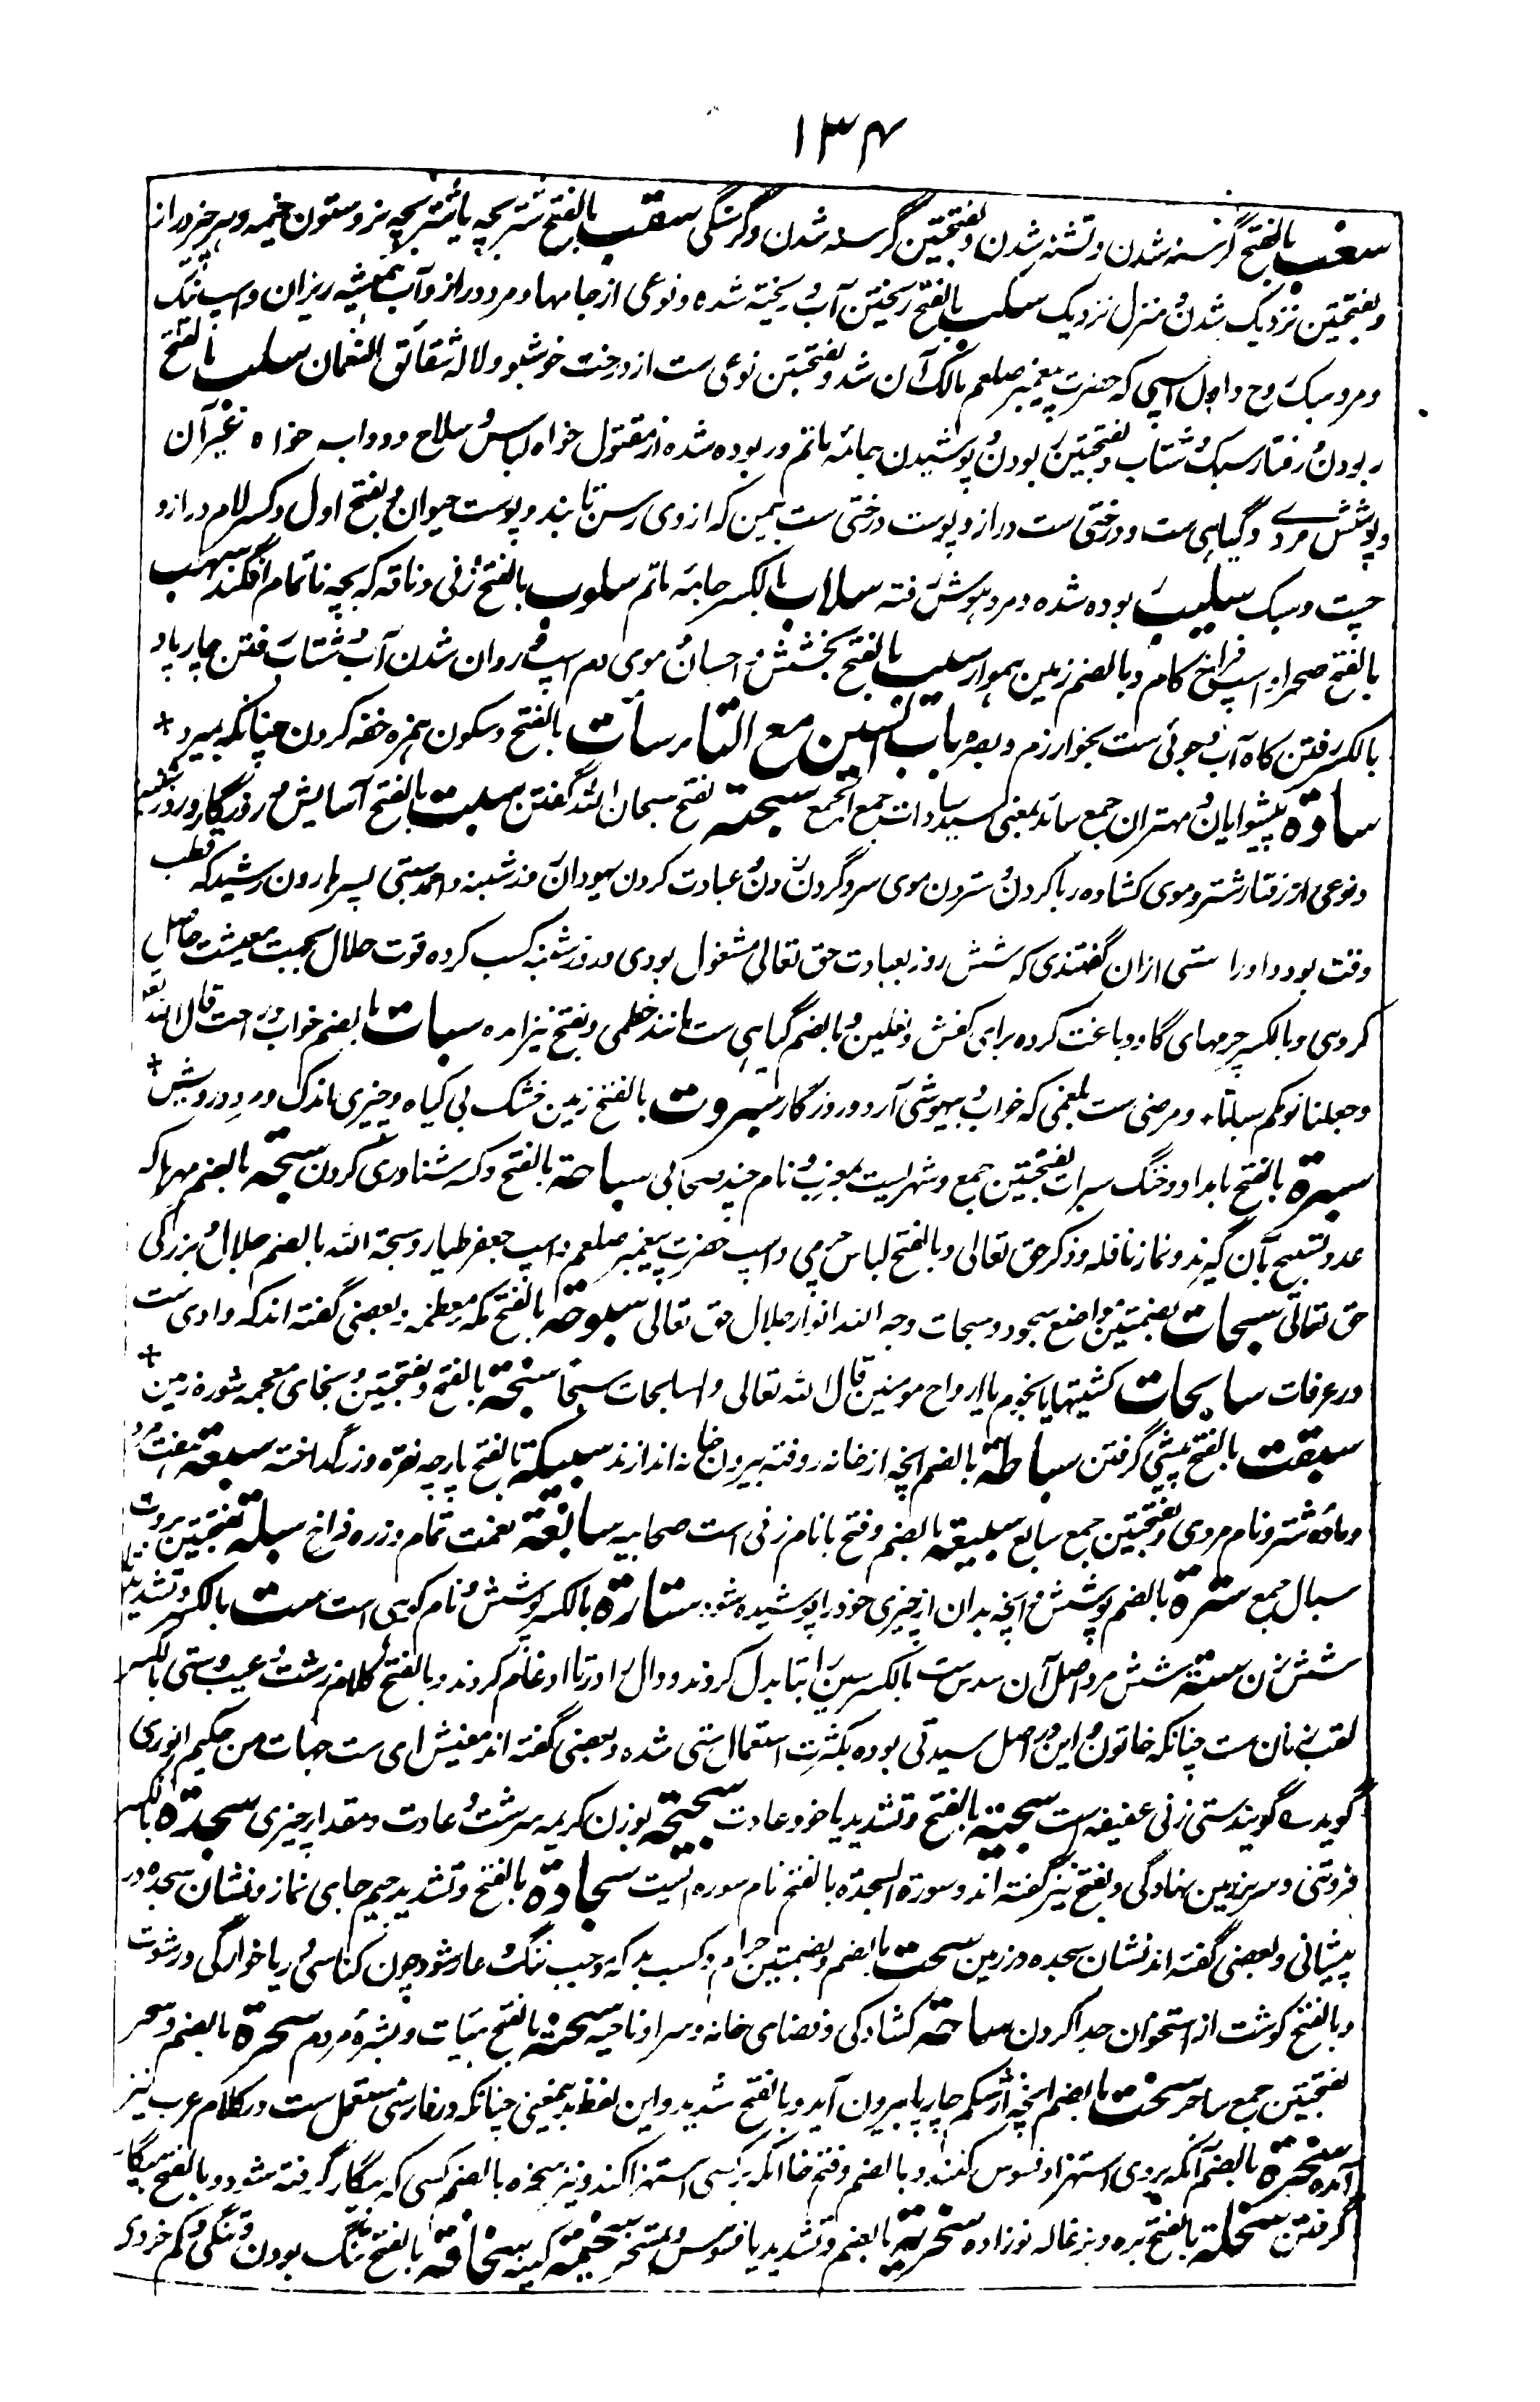 ۱۳۴
سغب بالفتح گرسنه شدن و تشنه شدن و بفتحتین گرسنه شدن و گرسنگی سقب بالفتح شتر بچه یا شتر بچه نر و ستون خیمه و هر چیز دراز
و بفتحتین نزدیک شدن و منزل نزدیک سکب بالفتح ریختن آب و ریخته شده و نوعی از جامها و مرد دراز و آب همیشه ریزان و اسپ نیک
و مرد سبک روح و اول اسپی که حضرت پیغمبر صلعم مالک آن شد و بفتحتین نوعی ست از درخت خوشبو و لاله شقائق النعمان سلب بالفتح
ربودن و رفتار سبک و شتاب و بفتحتین ربودن و پوشیدن جامۀ ماتم و ربوده شده از مقتول خواه لباس و سلاح و دواب خواه غیر آن
و پوشش مردے و گیاهی ست و درختی ست دراز و پوست درختی ست بیمن که از وی رسن تابند و پوست حیوان و بفتح اول و کسر لام دراز و
چست و سبک سلیب ربوده شده و مرد هوش رفته سلاب بالکسر جامۀ ماتم سلوب بالفتح زنی و ناقه که بچه ناتمام افگند سهب
بالفتح صحرا و اسپ فراخ کام و بالضم زمین هموار سیب بالفتح بخشش و احسان و موی دم اسپ و روان شدن آب و شتاب رفتن چارپا و
بالکسر رفتن گاه آب و جوئی ست بخوارزم و بصره باب السین مع التاء سأت بالفتح و سکون همزه خفه کردن چنانکه بمیرد +
سادة پیشوایان و مهتران جمع سائد بمعنی سید سادات جمع الجمع سبحة بفتح سبحان الله گفتن سبت بالفتح آسایش و روزگار و روز شنبه
و نوعی از رفتار شتر و موی کشاده رها کردن و ستردن موی سر و گردن زدن و عبادت کردن یهودان روز شنبه و احمد سبتی پسر هارون رشید که قطب
وقت بود و او را سبتی ازان گفتندی که شش روز بعبادت حق تعالی مشغول بودی و روز شنبه کسب کرده قوت حلال بجهت معیشت حاصل
کردی و بالکسر چرمهای گاو دباغت کرده برای کفش و نعلین و بالضم گیاهی ست مانند خطمی و بفتح نیز آمده سبات بالضم خواب و راحت قال الله تعالی
وجعلنا نومکم سباتا، و مرضی ست بلغمی که خواب و بیهوشی آرد و روزگار سبروت بالفتح زمین خشک بی گیاه و چیزی اندک و مرد درویش +
سبرة بالفتح بامداد و خنک سبرات بفتحتین جمع و شهریست بمغرب و نام چند صحابی سباحة بالفتح و کسر شناوری کردن سبحة بالضم مهرها که
عدد تسبیح بآن گیرند و نماز نافله و ذکر حق تعالی و بالفتح لباس چرمی و اسپ حضرت پیغمبر صلعم و اسپ جعفر طیار و سبحة الله بالضم جلال و بزرگی
حق تعالی سبحات بضمتین مواضع سجود و سبحات وجه الله انوار جلال حق تعالی سبوحة بالفتح مکه معظمه و بعضی گفته اند که وادی ست
در عرفات سابحات کشتیها یا نجوم یا ارواح مومنین قال الله تعالی والسابحات سبحا سبخة بالفتح و بفتحتین و بخای معجمه شوره زمین +
سبقت بالفتح پیشی گرفتن سباطة بالضم آنچه از خانه روفته بیرون خانه اندازند سبیکة بالفتح پارچه نقره و زر گداخته سبعة هفت مرد
و ماده شتر و نام مردی و بفتحتین جمع سابع سبیعة بالضم و فتح با نام زنی است صحابیه سابغة نعمت تمام و زره فراخ سبلة بفتحتین بروت
سبال جمع سترة بالضم پوشش و آنچه بدان از چیزی خود را پوشیده شود ستارة بالکسر پوشش و نام کوهی است ست بالکسر و تشدید
شش زن ستة شش مرد اصل آن سدس ست بالکسر سین را بتا بدل کردند و دال را در تا ادغام کردند و بالفتح کلام زشت و عیب و ستی بالکسر
لقب زنان ست چنانکه خاتون و این در اصل سیدتی بوده بکثرت استعمال ستی شده و بعضی گفته اند معنیش ای ست جهات من حکیم انوری
گوید ے گویند ستی زنی عفیفه است سجیة بالفتح و تشدید یا خو و عادت سجیحة بوزن کریمه سرشت و عادت و مقدار چیزی سجدة بالکسر
فروتنی و سر بزمین نهادگی و بفتح نیز گفته اند و سورة السجدة بالفتح نام سوره ایست سجادة بالفتح و تشدید جیم جای نماز و نشان سجده در
پیشانی و بعضی گفته اند نشان سجده در زمین سحت بالضم و بضمتین حرام و کسب بد که موجب ننگ و عار شود چون کناسی و ربا خوارگی و رشوت
و بالفتح گوشت از استخوان جدا کردن ساحة کشادگی و فضای خانه و سرا و ناحیه سحنة بالفتح هیئات و بشرۀ مردم سحرة بالضم و سحر
بفتحتین جمع ساحر سخت بالضم آنچه از شکم چارپا بیرون آید و بالفتح شدید و این لفظ بدیمعنی چنانکه در فارسی مستعمل ست در کلام عرب نیز
آمده سخرة بالضم آنکه بر وی استهزا و فسوس کنند و بالضم و فتح خا آنکه بر کسی استهزا کند و نیز سخره بالضم کسی که بیگار گرفته شود و بالفتح بیگار
گرفتن سخلة بالفتح بره و بزغاله نوزاده سخریة بالضم و تشدید یا فسوس و تمسخر سخیمة کینه سخافة بالفتح تنگ بودن و تنگی و کم خردی